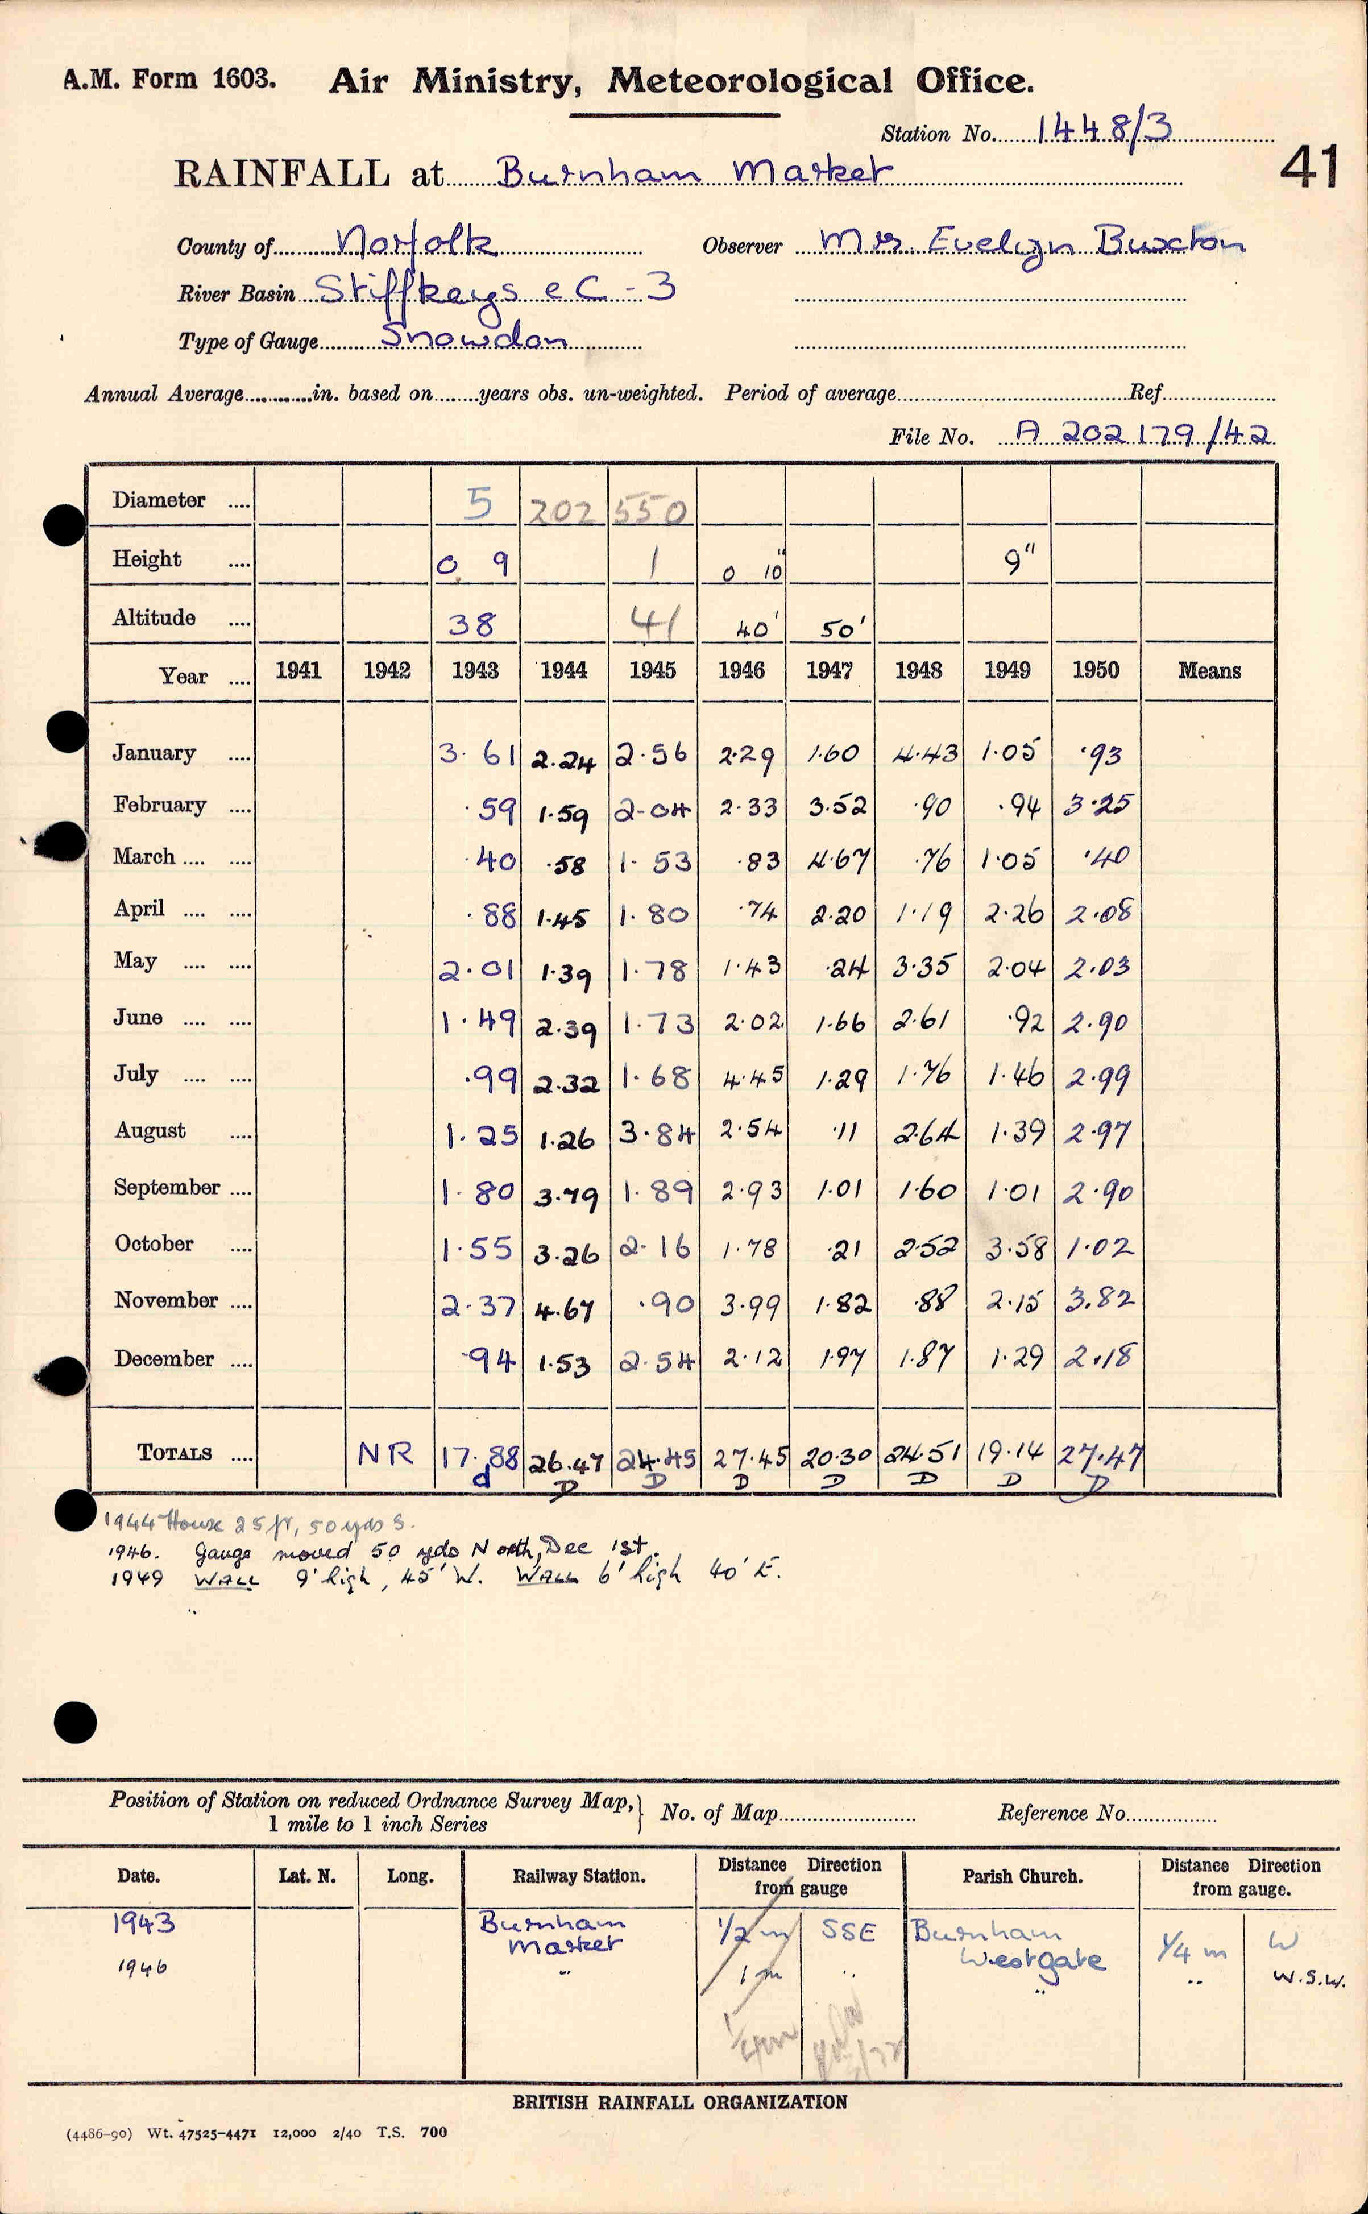 A.M. Form 1603. Air Ministry, Meteorological Office.
Station No. 1448/3
41
RAINFALL at Burnham Market
County of Norfolk Observer Mrs. Evelyn Buxton
River Basin Stiffkeys e C - 3
Type of Gauge Snowdon
Annual Average............in. based on.......years obs. un-weighted. Period of average.......... Ref..........
File No. A 202179/42
Diameter .... 5 202 550
Height .... 0 9 1 0 10" 9"
Altitude .... 38 41 40' 50'
Year .... 1941 1942 1943 1944 1945 1946 1947 1948 1949 1950 Means
January .... 3.61 2.24 2.56 2.29 1.60 4.43 1.05 .93
February .... .59 1.59 2.04 2.33 3.52 .90 .94 3.25
March .... .... .40 .58 1.53 .83 4.67 .76 1.05 .40
April .... .... .88 1.45 1.80 .74 2.20 1.19 2.26 2.08
May .... .... 2.01 1.39 1.78 1.43 .24 3.35 2.04 2.03
June .... .... 1.49 2.39 1.73 2.02 1.66 2.61 .92 2.90
July .... .... .99 2.32 1.68 4.45 1.29 1.76 1.46 2.99
August .... 1.25 1.26 3.84 2.54 .11 2.64 1.39 2.97
September .... 1.80 3.79 1.89 2.93 1.01 1.60 1.01 2.90
October .... 1.55 3.26 2.16 1.78 .21 2.52 3.58 1.02
November .... 2.37 4.67 .90 3.99 1.82 .88 2.15 3.82
December .... .94 1.53 2.54 2.12 1.97 1.87 1.29 2.18
TOTALS .... NR 17.88 26.47 24.45 27.45 20.30 24.51 19.14 27.47
d D D D D D D D
1944 House 25 ft, 50 yds S.
1946. Gauge moved 50 yds North, Dec 1st.
1949 WALL 9' high, 45' W. WALL 6' high 40' E.
Position of Station on reduced Ordnance Survey Map, } No. of Map.......... Reference No..........
1 mile to 1 inch Series
Date. Lat. N. Long. Railway Station. Distance Direction from gauge Parish Church. Distance Direction from gauge.
1943 Burnham Market 1/2 m SSE Burnham Westgate 1/4 m W
1946 " 1 m " " " W.S.W.
1/4m
BRITISH RAINFALL ORGANIZATION
(4486-90) Wt. 47525-4471 12,000 2/40 T.S. 700